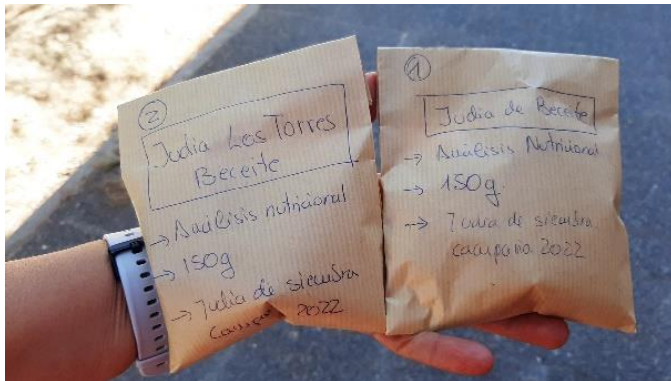 2
Judia Los Torres
Beceite
→ Análisis nutricional
→ 150g
→ Judia de siembra
campaña 2022
1
Judia de Beceite
→ Análisis Nutricional
→ 150g.
→ Judia de siembra
campaña 2022